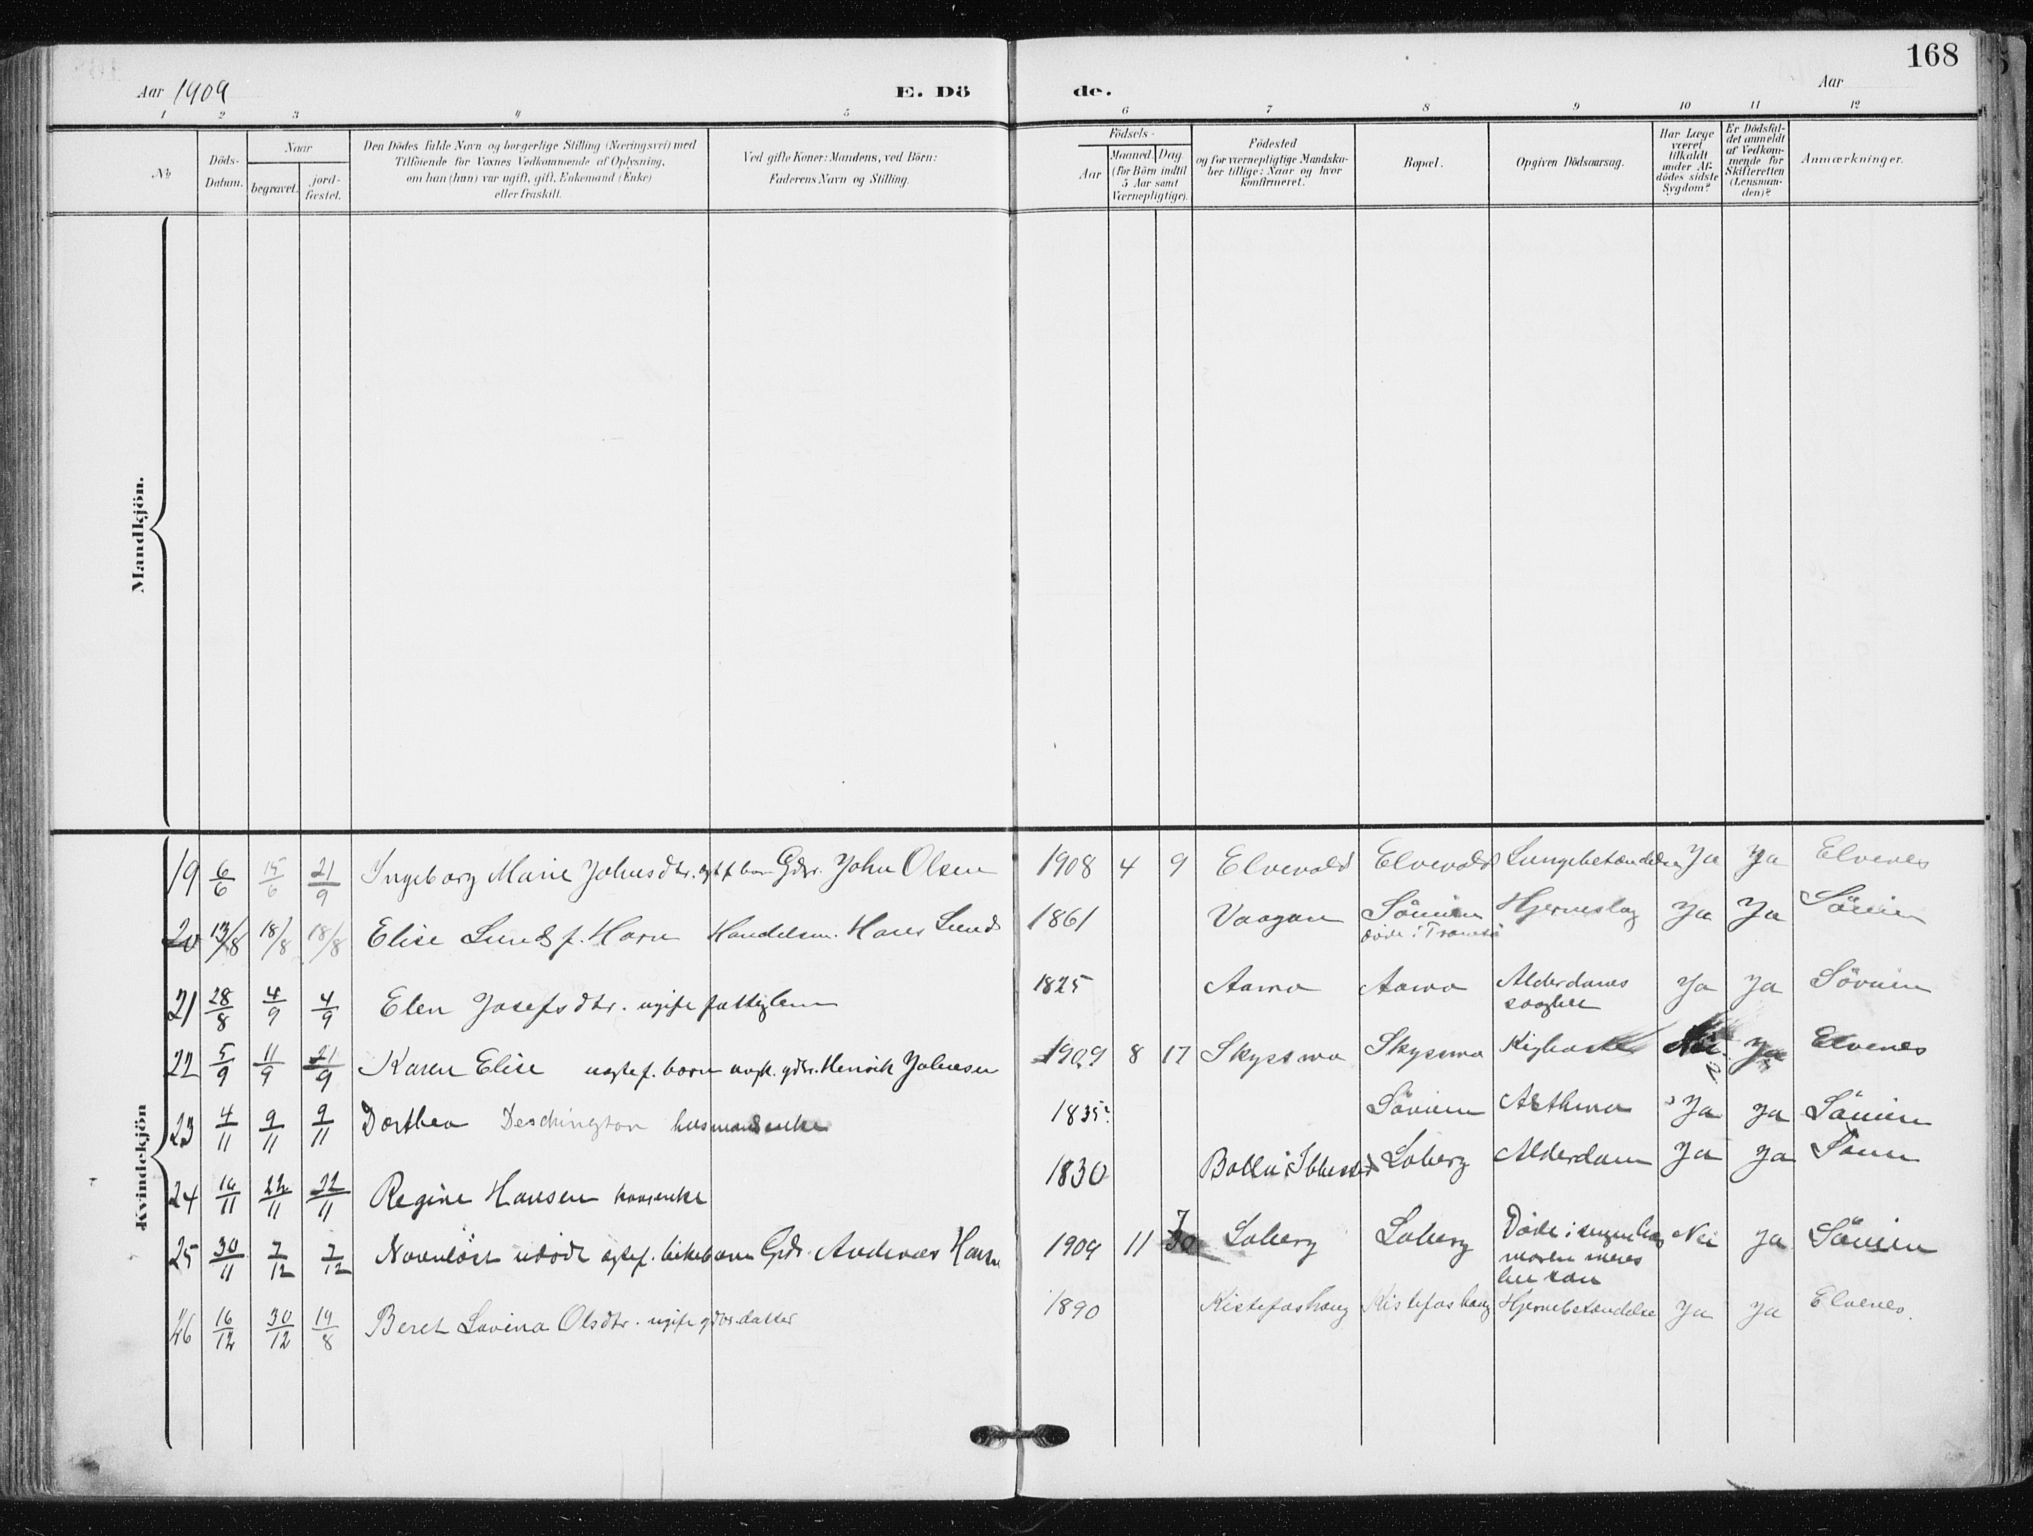 168
Aar 1909
E. Dö
de.
Aar
1 2 3 4 5 6 7 8 9 10 11 12
№
Döds-
Datum.
Naar
begravet.
jord-
fæstet.
Den Dödes fulde Navn og borgerlige Stilling (Næringsvei) med
Tilföiende for Voxnes Vedkommende af Oplysning,
om han (hun) var ugift, gift, Enkemand (Enke)
eller fraskilt.
Ved gifte Koner: Mandens, ved Börn:
Faderens Navn og Stilling.
Födsels-
Aar
Maaned. Dag
(for Börn indtil
5 Aar samt
Værnepligtige).
Födested
og for værnepligtige Mandska-
ber tillige: Naar og hvor
konfirmeret.
Bopæl.
Opgiven Dödsaarsag.
Har Læge
været
tilkaldt
under Af-
dödes sidste
Sygdom?
Er Dödsfal-
det anmeldt
af Vedkom-
mende for
Skifteretten
(Lensman-
den)?
Anmærkninger.
Mandkjön.
Kvindekjön
19 6/6 15/6 21/9 Ingeborg Marie Johnsdtr. Gdbr. John Olsen 1908 4 9 Elvevold Elvevold Lungebetændelse Ja Ja Elvenes
20 18/8 18/8 Elise Lund f. Horn Handelsm. Hans Lund 1861 Vaagan Hjerneslag Ja Ja
døde i Tromsö
21 28/8 4/9 4/9 Elen Josefsdtr. ugift fattiglem 1825 Aamo Aamo Alderdoms Ja Ja Sövein
22 5/9 11/9 21/9 Karen Elise uegtef. barn ungk. gdbr. Henrik Johnsen 1909 8 17 Skyssmo Skyssmo Kighoste Nei Ja Elvenes
23 4/11 9/11 9/11 Dorthea Deschington husmandsenke 1835? Asthma Ja Ja
24 16/11 22/11 22/11 Regine Hansen 1830 Loberg Alderdom Ja Ja
25 30/11 7/12 7/12 udöbt egtef. Gdr. Andreas Hansen 1909 11 30 Loberg Loberg Döde i Nei Ja
moren
26 16/12 30/12 19/8 Beret Lovina Olsdtr. ugift gdbr. datter 1890 Kistefoshaug Kistefoshaug Hjernebetændelse Ja Ja Elvenes.